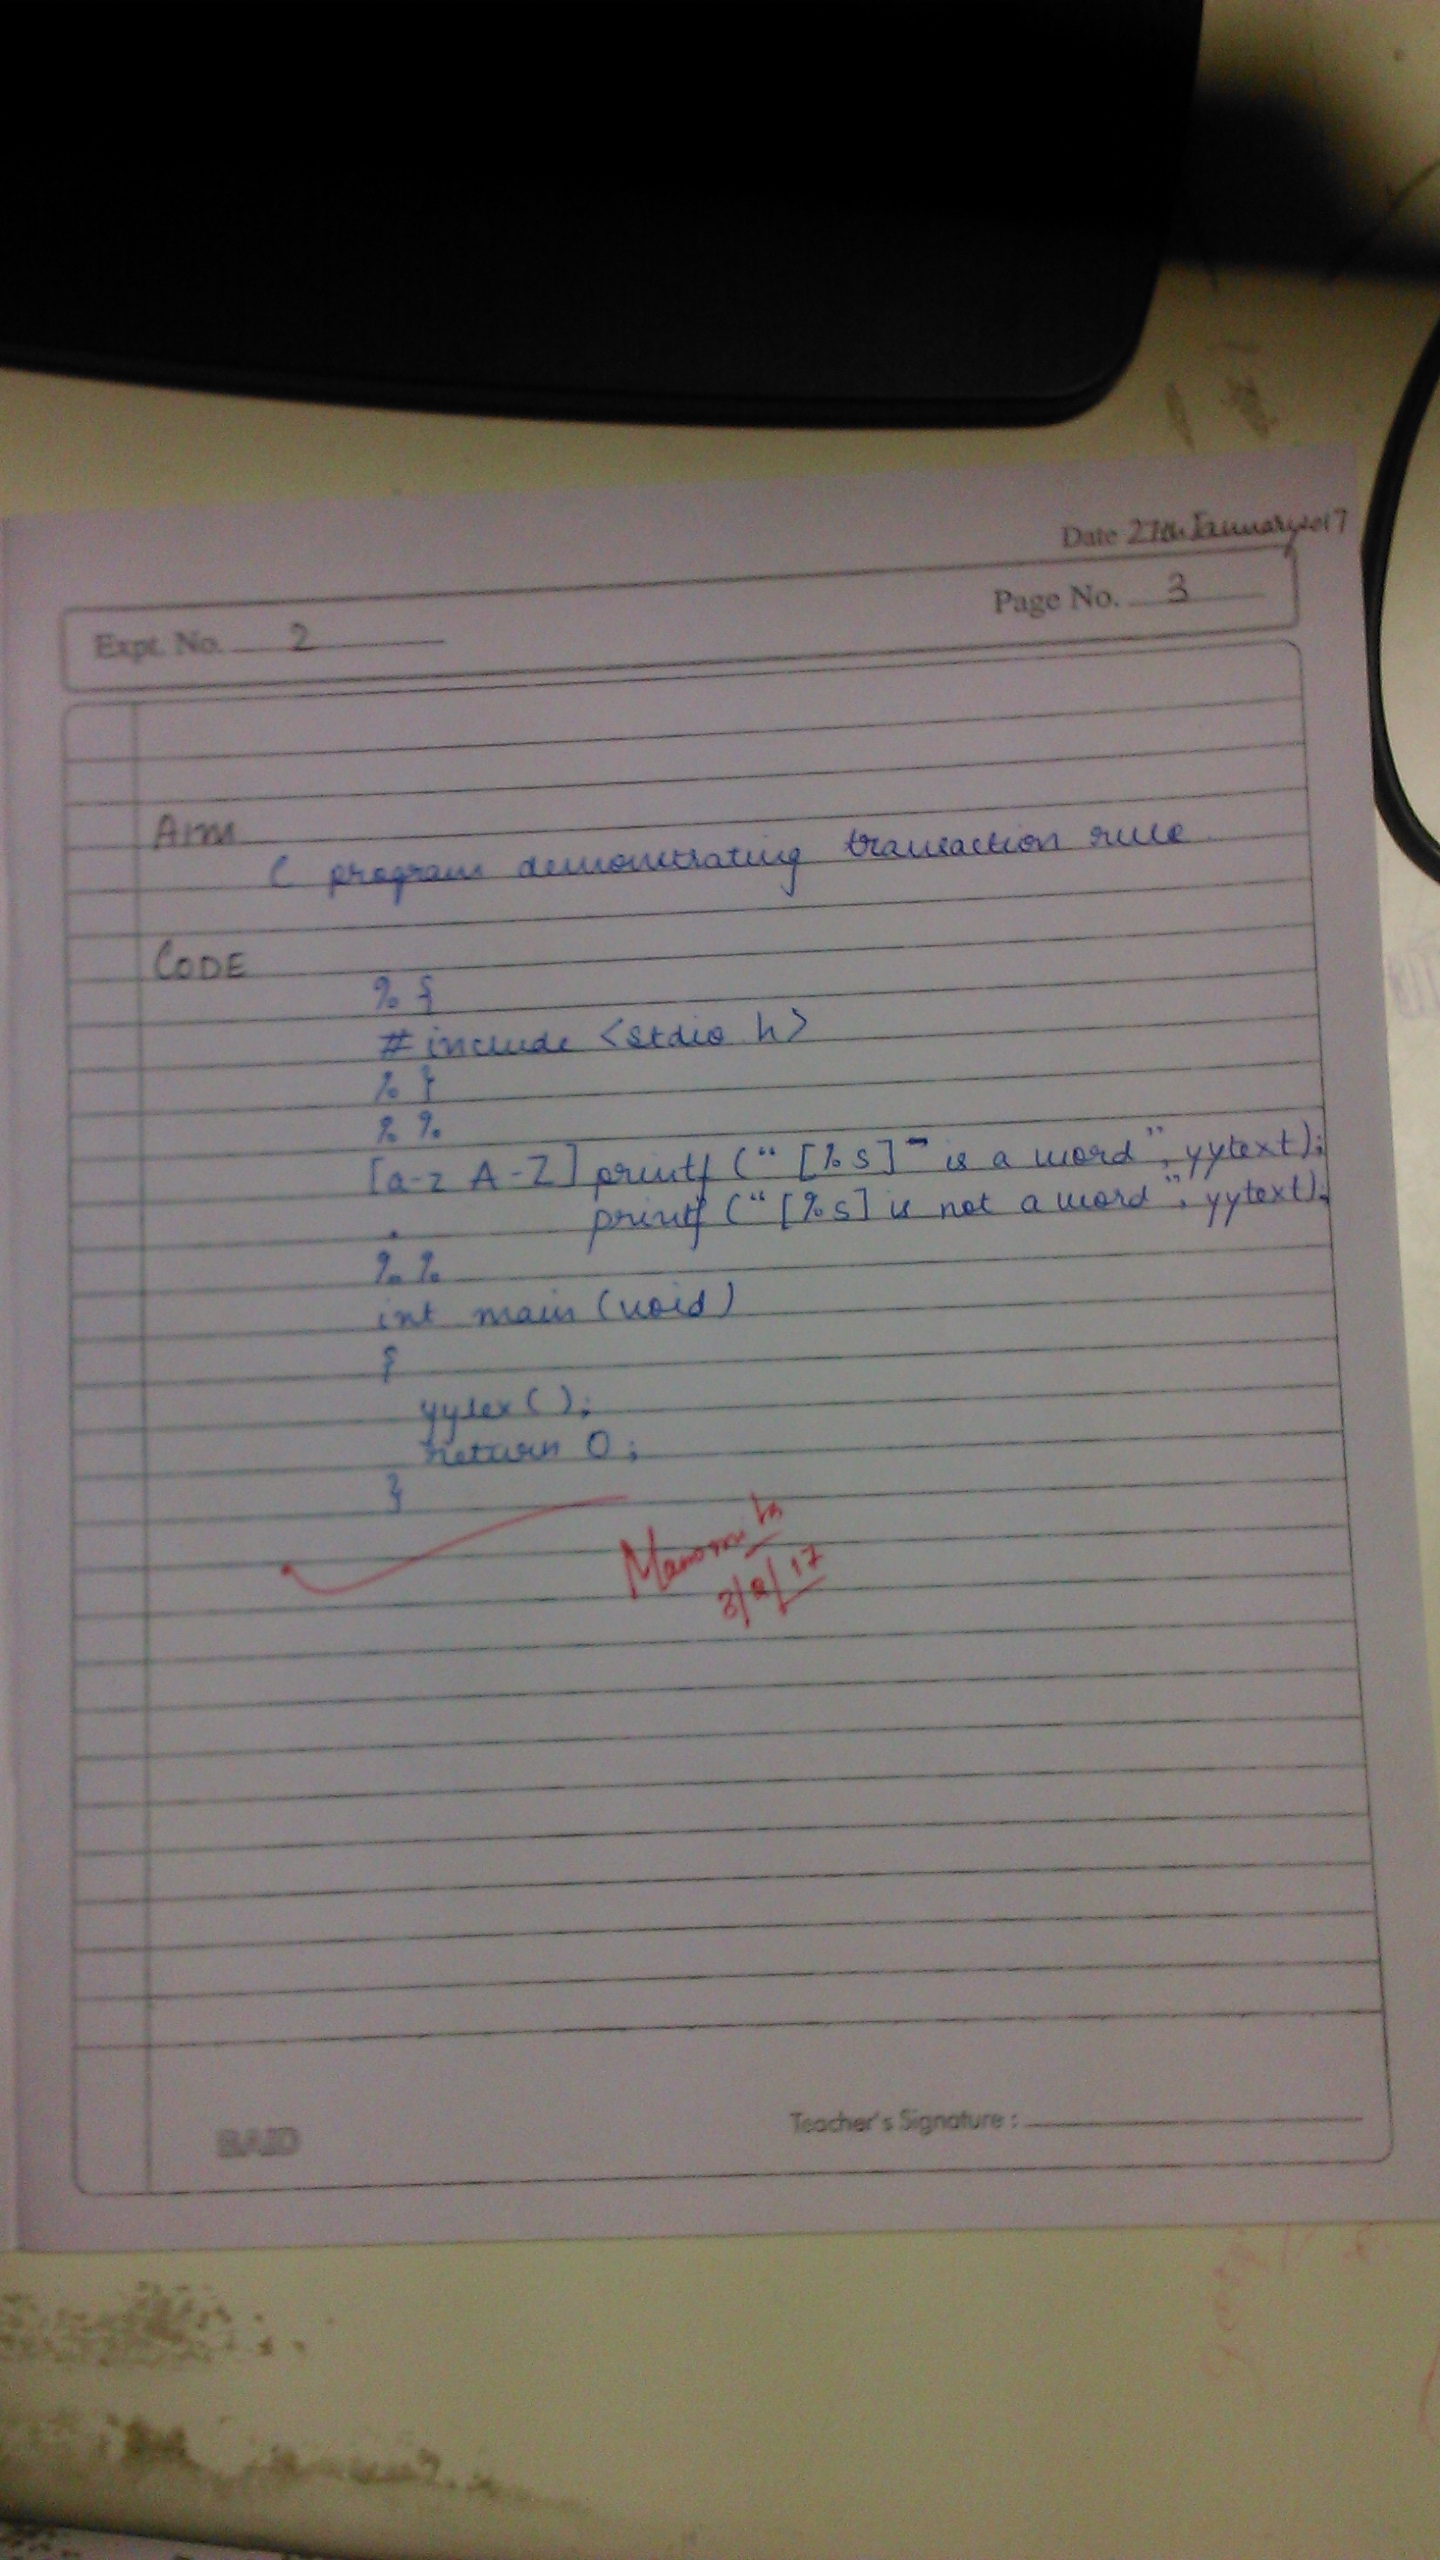 Date 27th January 2017
Expt. No. 2
Page No. 3
AIM
C program demonstrating transaction rule
CODE
%{
#include <stdio.h>
%}
%%
[a-z A-Z] printf (“ [%s] is a word”, yytext);
. printf (“[%s] is not a word”, yytext);
%%
int main (void)
{
yylex ( );
return 0;
}
3/2/17
Teacher's Signature :